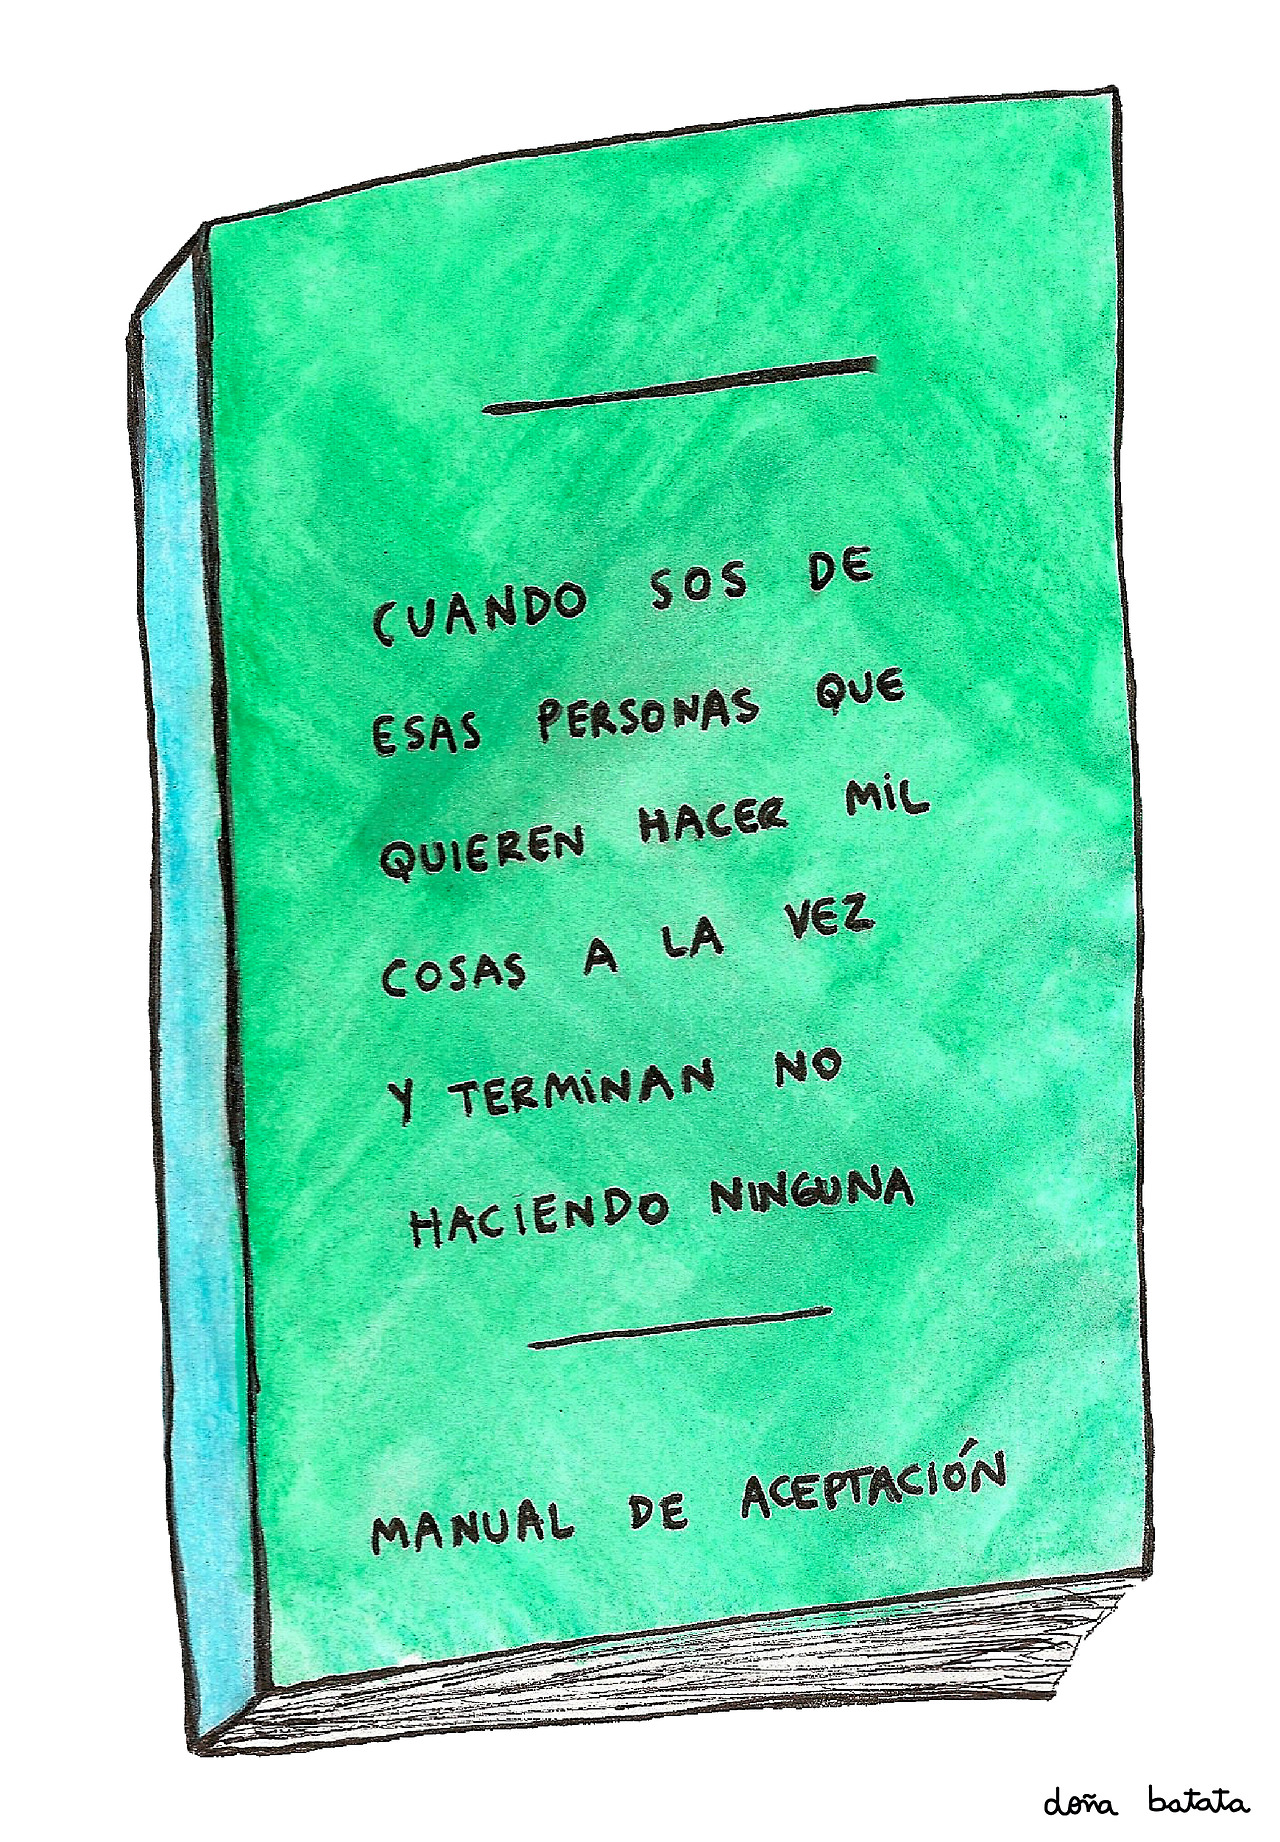 CUANDO SOS DE
ESAS PERSONAS QUE
QUIEREN HACER MIL
COSAS A LA VEZ
Y TERMINAN NO
HACIENDO NINGUNA
MANUAL DE ACEPTACIÓN
doña batata